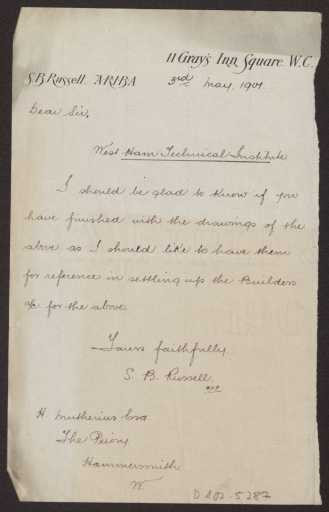 11 Gray's Inn Square. W.C.
S.B. Russell. A.R.I.B.A
3rd May, 1901
Dear Sir,
West Ham Technical Institute
I should be glad to know if you
have finished with the drawings of the
above as I should like to have them
for reference in settling up the Builders
a/c for the above.
Yours faithfully
S. B. Russell
H. Muthesius Esq
The Priory
Hammersmith
W.